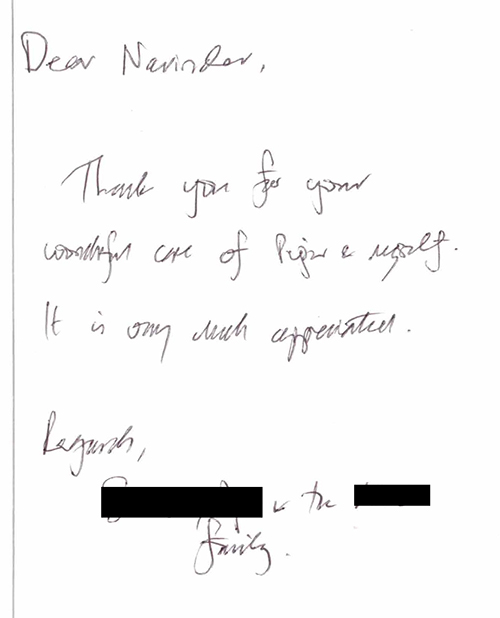 Dear Narinder,
Thank you for your
wonderful care of & myself.
It is very much appreciated.
Regards,
& the
family.